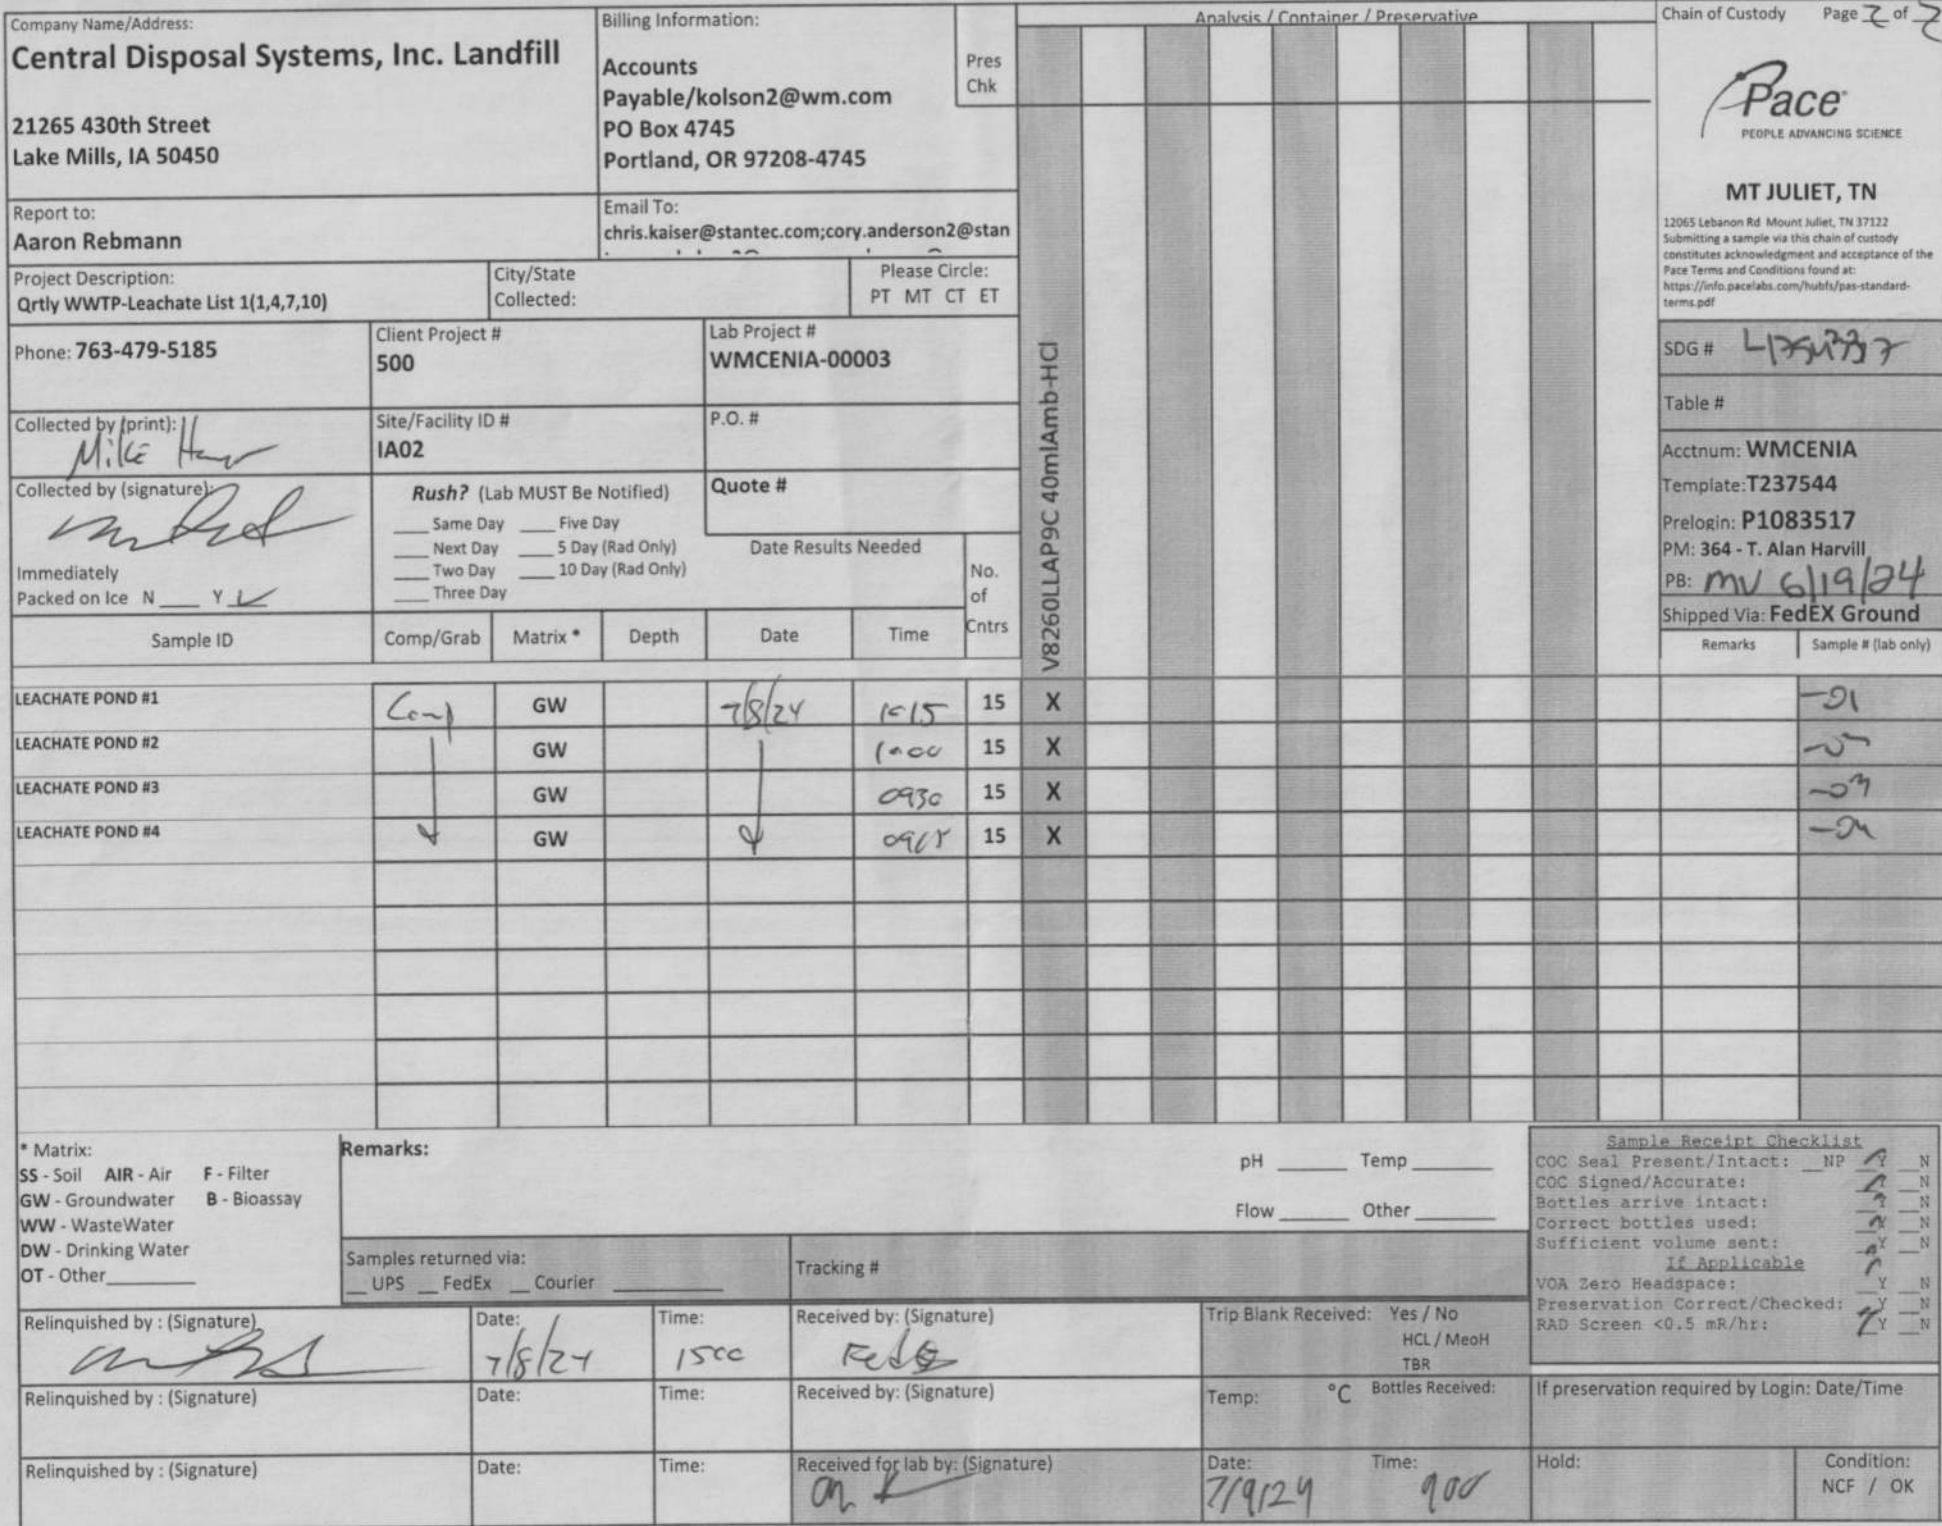 Company Name/Address:
Central Disposal Systems, Inc. Landfill
21265 430th Street
Lake Mills, IA 50450
Billing Information:
Accounts
Payable/kolson2@wm.com
PO Box 4745
Portland, OR 97208-4745
Pres
Chk
Analysis / Container / Preservative
Chain of Custody Page 2 of 2
Pace
PEOPLE ADVANCING SCIENCE
MT JULIET, TN
12065 Lebanon Rd Mount Juliet, TN 37122
Submitting a sample via this chain of custody
constitutes acknowledgment and acceptance of the
Pace Terms and Conditions found at:
https://info.pacelabs.com/hubfs/pas-standard-
terms.pdf
Report to:
Aaron Rebmann
Email To:
chris.kaiser@stantec.com;cory.anderson2@stan
Project Description:
Qrtly WWTP-Leachate List 1(1,4,7,10)
City/State
Collected:
Please Circle:
PT MT CT ET
Phone: 763-479-5185
Client Project #
500
Lab Project #
WMCENIA-00003
SDG #
Table #
Collected by (print):
Mike
Site/Facility ID #
IA02
P.O. #
Acctnum: WMCENIA
Template:T237544
Prelogin: P1083517
PM: 364 - T. Alan Harvill
PB: MV 6/19/24
Shipped Via: FedEX Ground
Collected by (signature):
Immediately
Packed on Ice N ____ Y ____
Rush? (Lab MUST Be Notified)
____ Same Day ____ Five Day
____ Next Day ____ 5 Day (Rad Only)
____ Two Day ____ 10 Day (Rad Only)
____ Three Day
Quote #
Date Results Needed
No.
of
Cntrs
V8260LLAP9C 40mlAmb-HCl
Sample ID Comp/Grab Matrix * Depth Date Time Remarks Sample # (lab only)
LEACHATE POND #1 Comp GW 7/8/24 1015 15 X -01
LEACHATE POND #2 GW 1000 15 X
LEACHATE POND #3 GW 0930 15 X -03
LEACHATE POND #4 GW 0915 15 X -04
* Matrix:
SS - Soil AIR - Air F - Filter
GW - Groundwater B - Bioassay
WW - WasteWater
DW - Drinking Water
OT - Other____
Remarks:
pH ____ Temp ____
Flow ____ Other ____
Samples returned via:
__ UPS __ FedEx __ Courier ____
Tracking #
Sample Receipt Checklist
COC Seal Present/Intact: __NP __Y __N
COC Signed/Accurate: __Y __N
Bottles arrive intact: __Y __N
Correct bottles used: __Y __N
Sufficient volume sent: __Y __N
If Applicable
VOA Zero Headspace: __Y __N
Preservation Correct/Checked: __Y __N
RAD Screen <0.5 mR/hr: __Y __N
Relinquished by : (Signature)
Date:
7/8/24
Time:
1500
Received by: (Signature)
FedEx
Trip Blank Received: Yes / No
HCL / MeoH
TBR
Relinquished by : (Signature)
Date:
Time:
Received by: (Signature)
Temp: °C Bottles Received:
If preservation required by Login: Date/Time
Relinquished by : (Signature)
Date:
Time:
Received for lab by: (Signature)
Date:
7/9/24
Time:
900
Hold:
Condition:
NCF / OK